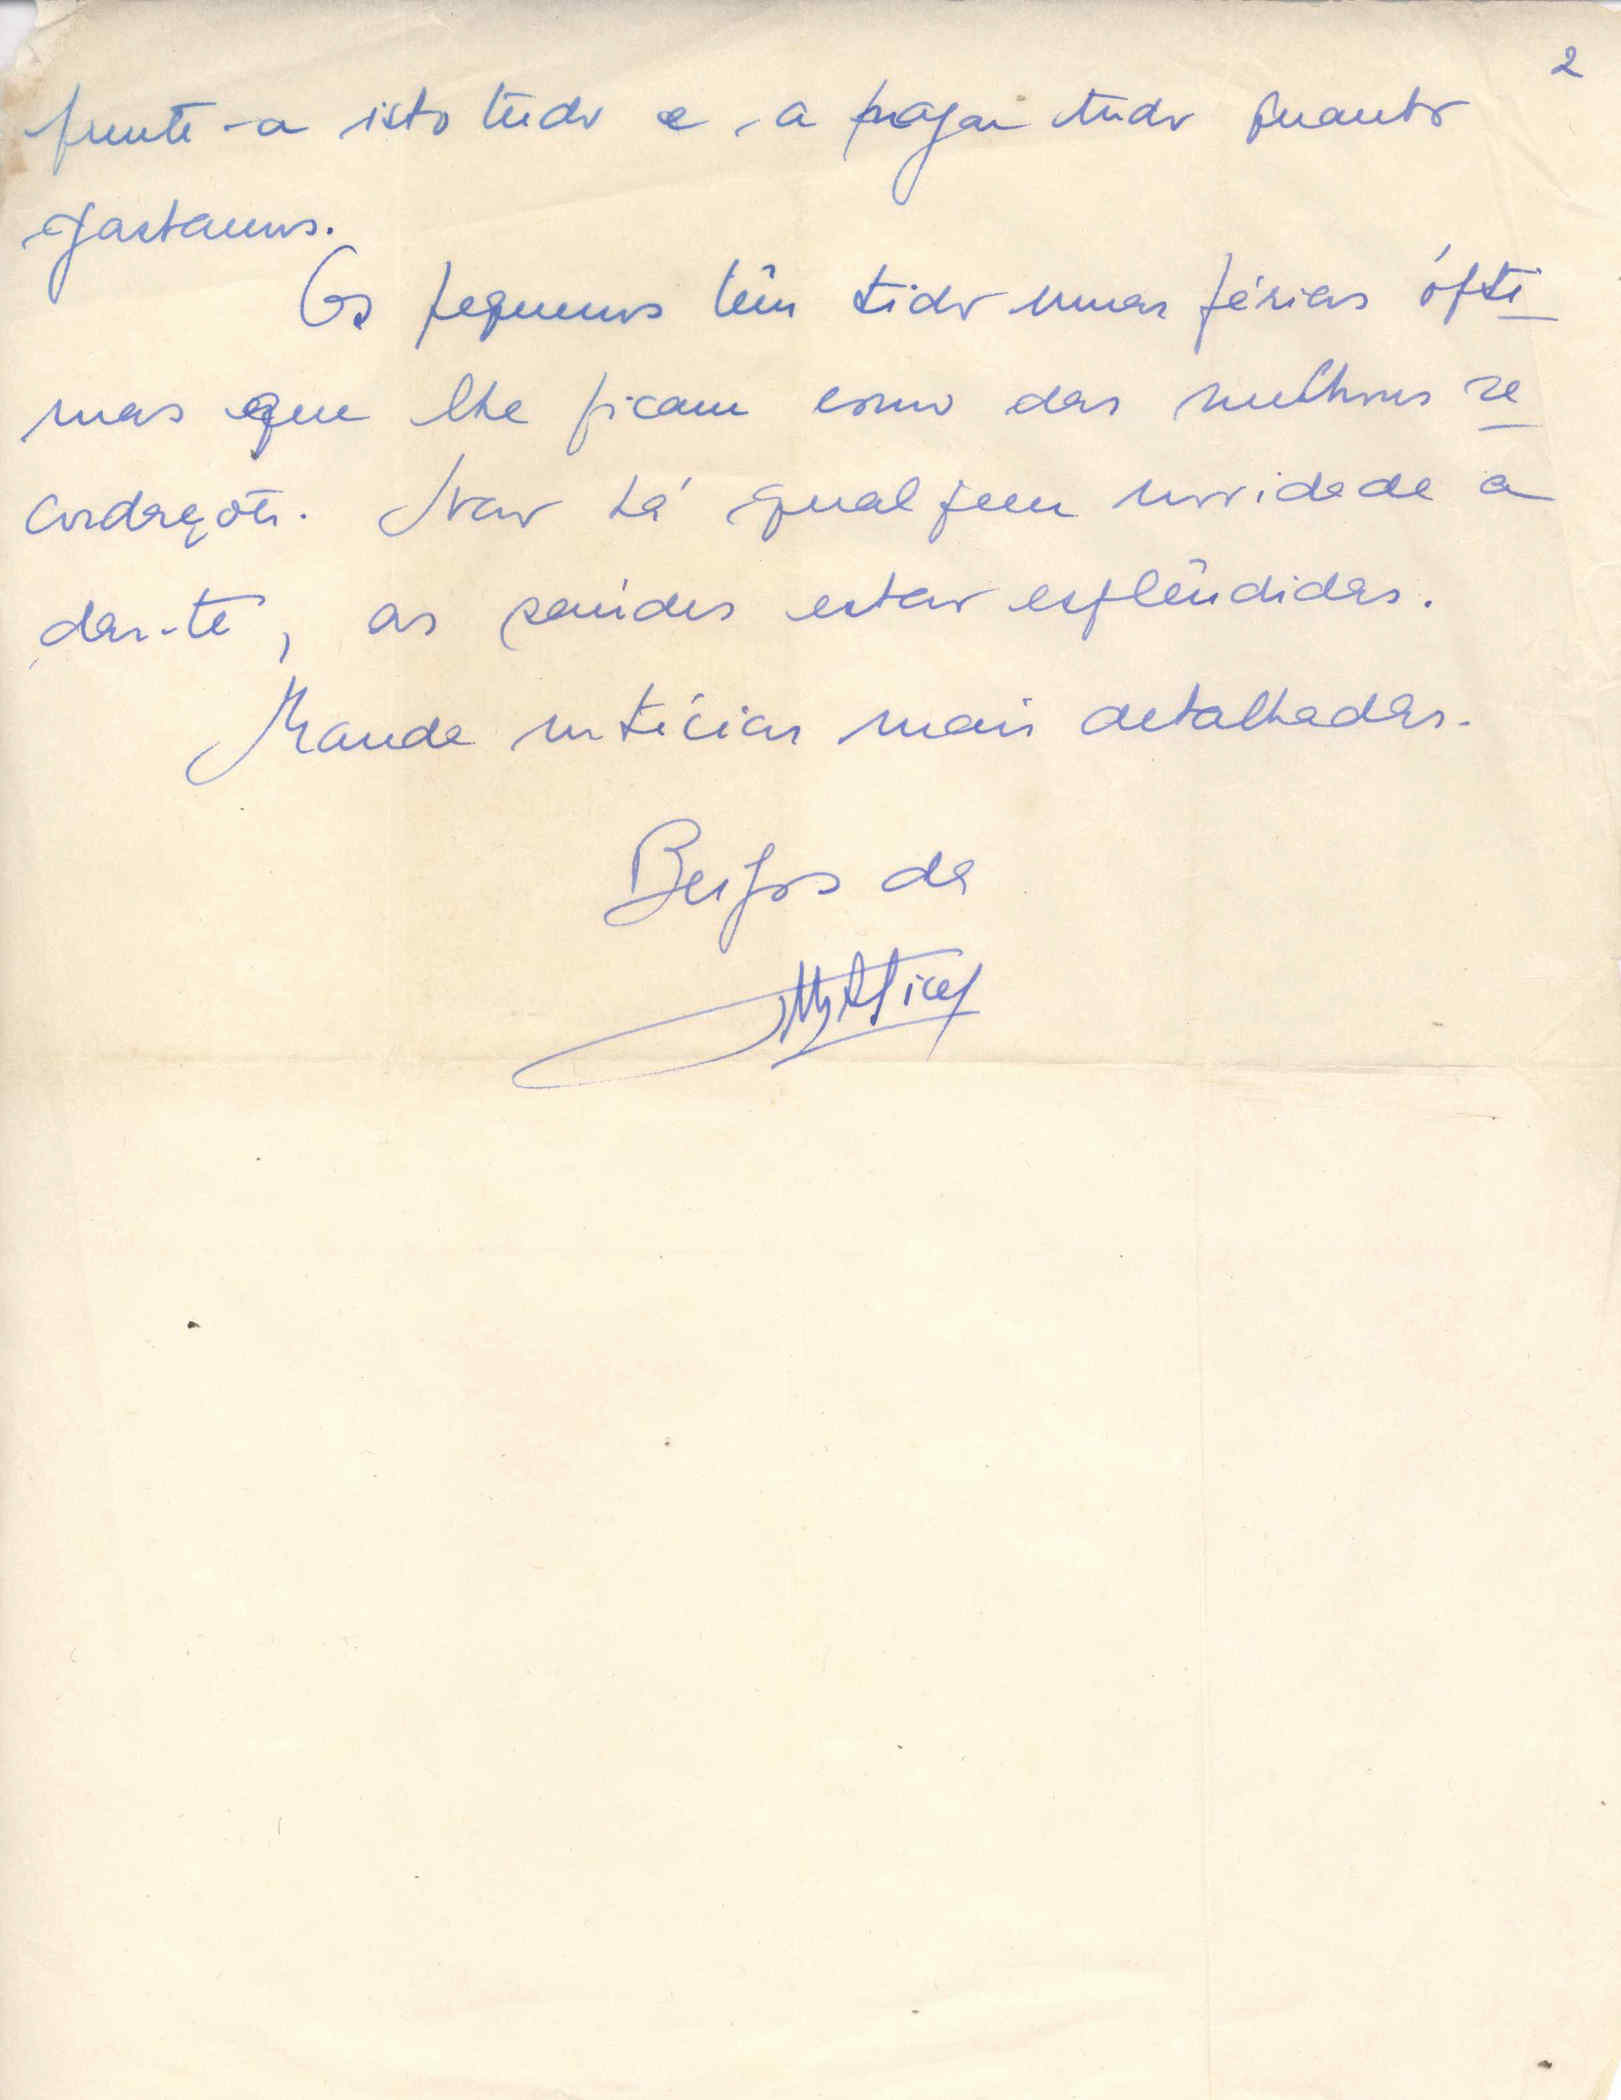 2
frente a isto tudo e a pagar tudo quanto
gastamos.
Os pequenos têm tido umas férias ópti
mas que lhe ficam como das melhores re
cordações. Não há qualquer novidade a
dar-te, as saúdes estão esplêndidas.
Mande notícias mais detalhadas.
Beijos da